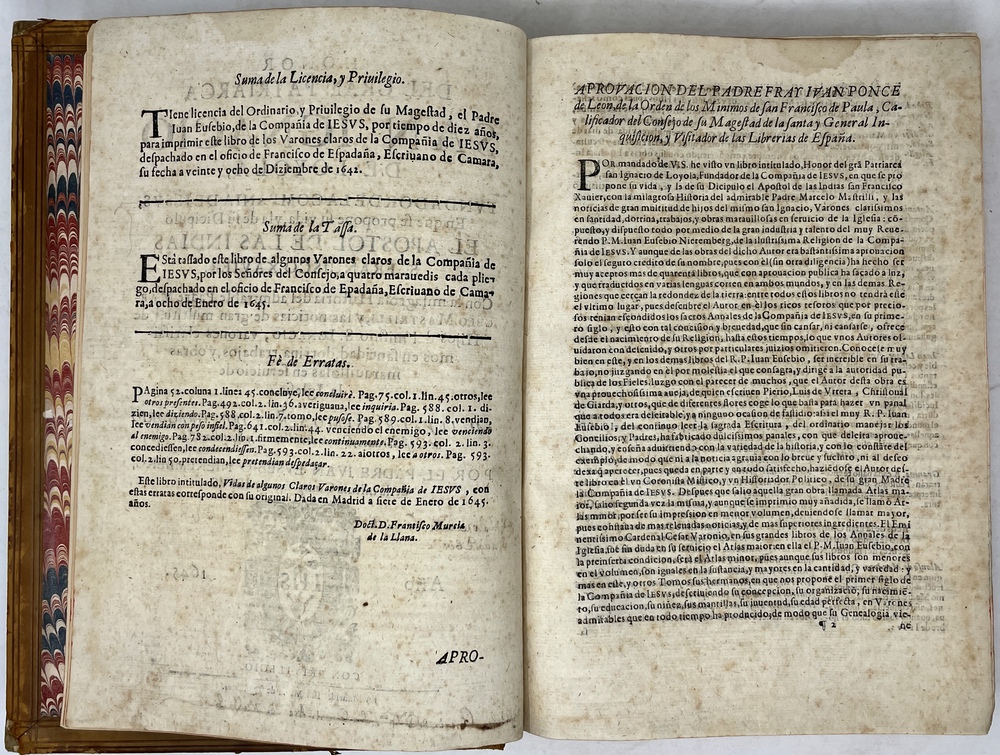 Suma de la Licencia, y Priuilegio.
TIene licencia del Ordinario, y Priuilegio de su Magestad, el Padre
Iuan Eusebio, de la Compañia de IESVS, por tiempo de diez años,
para imprimir este libro de los Varones claros de la Compañia de IESVS,
despachado en el oficio de Francisco de Espadaña, Escriuano de Camara,
su fecha a veinte y ocho de Diziembre de 1642.
Suma de la Tassa.
ESta tassado este libro de algunos Varones claros de la Compañia de
IESVS, por los Señores del Consejo, a quatro marauedis cada plie-
go, despachado en el oficio de Francisco de Epadaña, Escriuano de Cama-
ra, a ocho de Enero de 1645.
Fè de Erratas.
PAgina 52. coluna 1. linea 45. concluye, lee concluirè. Pag. 75. col. 1. lin. 45. otros, lee
otros presentes. Pag. 492. col. 2. lin. 36. aueriguana, lee inquiria. Pag. 588. col. 1. di-
zien, lee diziendo. Pag. 588. col. 2. lin. 7. tomo, lee pusose. Pag. 589. col. 1. lin. 8. vendian,
lee vendian con peso infiel. Pag. 641. col. 2. lin. 44. venciendo el enemigo, lee venciendo
al enemigo. Pag. 782. col. 2. lin. 1. firmemente, lee continuamente. Pag. 593. col. 2. lin. 3.
concediessen, lee condecendiessen. Pag. 593. col. 2. lin. 22. aiotros, lee a otros. Pag. 593.
col. 2. lin. 50. pretendian, lee pretendian despedaçar.
Este libro intitulado, Vidas de algunos Claros Varones de la Compañia de IESVS, con
estas erratas corresponde con su original. Dada en Madrid a siete de Enero de 1645.
años.
Doct. D. Francisco Murcia
de la Llana.
APRO-
APROVACION DEL PADRE FRAY IVAN PONCE
de Leon, de la Orden de los Minimos de san Francisco de Paula, Ca-
lificador del Consejo de su Magestad de la santa y General In-
quisicion, y Visitador de las Librerias de España.
POR mandado de V.S. he visto vn libro intitulado, Honor del grã Patriarca
san Ignacio de Loyola, Fundador de la Compañia de IESVS, en que se pro
pone su vida, y la de su Dicipulo el Apostol de las Indias san Francisco
Xauier, con la milagrosa Historia del admirable Padre Marcelo Mastrilli, y las
noticias de gran multitud de hijos del mismo san Ignacio, Varones clarissimos
en santidad, dotrina, trabajos, y obras marauillosas en seruicio de la Iglesia: cõ-
puesto, y dispuesto todo por medio de la gran industria y talento del muy Reue-
rendo P.M. Iuan Eusebio Nieremberg, de la ilustrissima Religion de la Compa-
ñia de IESVS. Y aunque de las obras del dicho Autor era bastantissima aprouacion
solo el seguro credito de su nombre, pues con el (sin otra diligencia) ha hecho ser
muy aceptos mas de quarenta libros, que con aprouacion publica ha sacado a luz,
y que traducidos en varias lenguas corren en ambos mundos, y en las demas Re-
giones que cercan la redondez de la tierra: entre todos estos libros no tendrà este
el vltimo lugar, pues descubre el Autor en èl los ricos tesoros que por precio-
sos tenian escondidos los sacros Annales de la Compañia de IESVS, en su prime-
ro siglo, y esto con tal concision, y breuedad, que sin cansar, ni cansarse, ofrece
desde el nacimiento de su Religion, hasta estos tiempos, lo que vnos Autores ol-
uidaron con descuido, y otros por particulares juizios omitieron. Conocese muy
bien en este, y en los demas libros del R.P. Iuan Eusebio, ser increible en su tra-
bajo, no juzgando en èl por molestia el que consagra, y dirige a la autoridad pu-
blica de los Fieles. Iuzgo con el parecer de muchos, que el Autor desta obra es
vna prouechosissima aueja, de quien escriuen Pierio, Luis de Vrrera, Christoual
de Giarda, y otros, que de diferentes flores coge lo que basta para hazer vn panal
que a todos era deleitable, y a ninguno ocasion de fastidio: assi el muy R.P. Iuan
Eusebio, del continuo leer la sagrada Escritura, del ordinario manejar los
Concilios, y Padres, ha fabricado dulcissimos panales, con que deleita aproue-
chando, y enseña aduirtiendo con la variedad de historia, y con lo constãte del
exemplo, de modo que ni a la noticia agrauia con lo breue y sucinto, ni al deseo
dexa q̃ apetecer, pues queda en parte y en todo satisfecho, haziẽdose el Autor des-
te libro en èl vn Coronista Mistico, y vn Historiador Politico, de su gran Madre
la Compañia de IESVS. Despues que saliò aquella gran obra llamada Atlas ma-
yor, saliò segunda vez la misma, y aunque se imprimiò muy añadida, se llamò At-
las minor, por ser su impression en menor volumen, deuiendose llamar mayor,
pues constaua de mas releuadas noticias, y de mas superiores ingredientes. El Emi
nentissimo Cardenal Cesar Varonio, en sus grandes libros de los Annales de la
Iglesia, fue sin duda en su seruicio el Atlas maior: en ella el P.M. Iuan Eusebio, con
la premserta condicion, serà el Atlas minor, pues aunque sus libros son menores
en el volumen, son iguales en la sustancia, y mayores en la cantidad, y variedad: y
mas en este, y otros Tomos sus hermanos, en que nos propone el primer siglo de
la Compañia de IESVS, descriuiendo su concepcion, su organizaciõ, su nacimiẽ-
to, su educacion, su niñez, sus mantillas, su juuentud, su edad perfecta, en Varones
admirables que en todo tiempo ha producido, de modo que su Genealogia vie-
¶ 2
ne